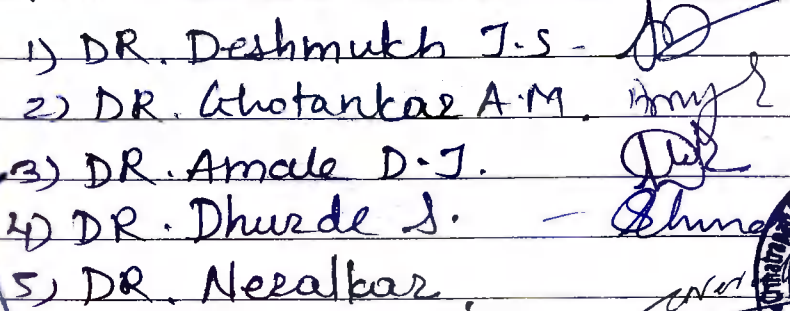 1) DR. Deshmukh J.S -
2) DR. Ghotankar A.M.
3) DR. Amale D.J.
4) DR. Dhurde S. -
5) DR. Neralkar.